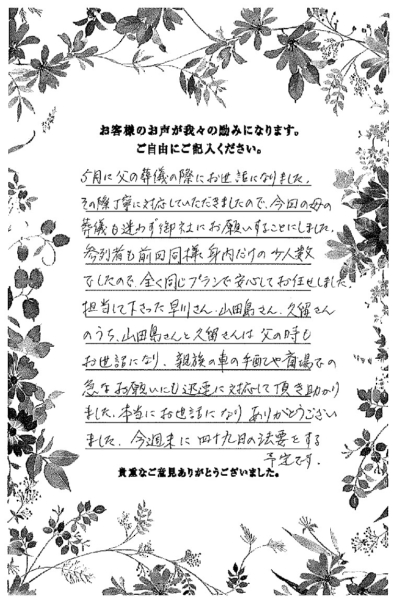 お客様のお声が我々の励みになります。
ご自由にご記入ください。
5月に父の葬儀の際にお世話になりました。
その際丁寧に対応していただきましたので、今回の母の
葬儀も迷わず御社にお願いすることにしました。
参列者も前回同様、身内だけの少人数
でしたので、全く同じプランで安心してお任せしました。
担当して下さった早川さん、山田島さん、久留さん
のうち、山田島さんと久留さんは父の時も
お世話になり、親族の車の手配や斎場での
急なお願いにも迅速に対応して頂き助かり
ました。本当にお世話になりありがとうござい
ました。今週末に四十九日の法要をする
予定です。
貴重なご意見ありがとうございました。